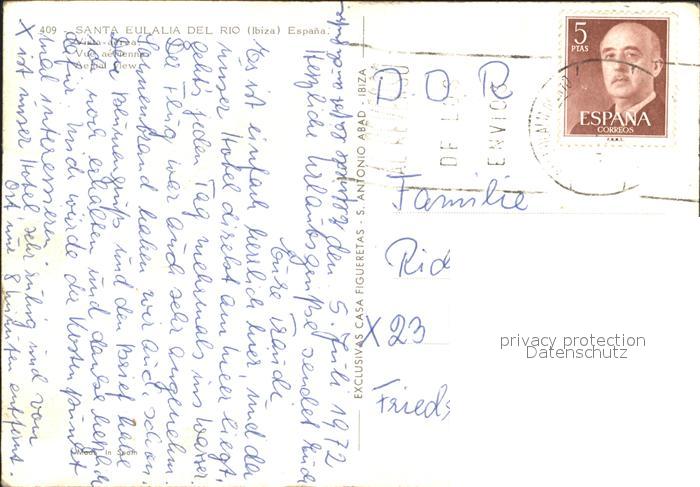 409 - SANTA EULALIA DEL RIO (Ibiza) España
Vista aérea
Vue aérienne
Aerial View
den 5. Juli 1972
Herzliche Urlaubsgrüße sendet Euch
Eure Traudi
Es ist einfach herrlich hier, und da
unser Hotel direkt am Meer liegt,
geht's jeden Tag mehrmals ins Wasser.
Der Flug war auch sehr angenehm.
Sonnenbrand haben wir auch schon.
und den Brief habe
ich noch erhalten und danke herzlich
dafür. Mich würde der Kostenpunkt
mal interessieren.
X ist unser Hotel, sehr ruhig und vom
Ort nur 8 Minuten entfernt.
Made in Spain
EXCLUSIVAS CASA FIGUERETAS - S. ANTONIO ABAD - IBIZA
DDR
Familie
Rid
X 23
Frieds
5
PTAS
ESPAÑA
CORREOS
F.N.M.T.
DE LOS
ENVIOS
privacy protection
Datenschutz